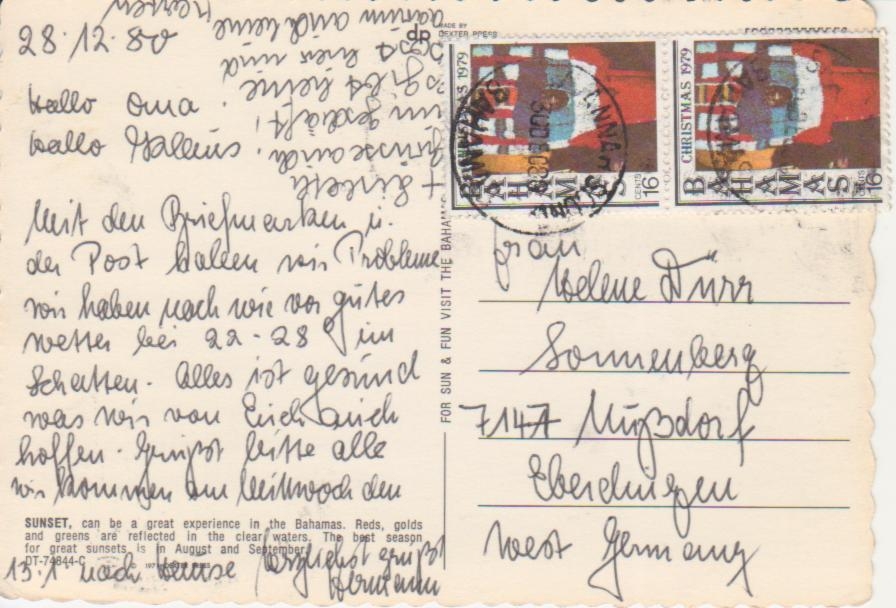 28.12.80
Hallo Oma.
Hallo Hallens.
Mit den Briefmarken u.
der Post haben wir Probleme
wir haben nach wie vor gutes
wetter bei 22-28° im
Schatten. Alles ist gesund
was wir von Euch auch
hoffen. Grüßt bitte alle
wir kommen am Mittwoch den
13.1 nach Hause herzlichst grüßt
Hermann
+ Liesel
im Geschäft,
es gibt keine
hier und
darum auch keine
Karten
SUNSET, can be a great experience in the Bahamas. Reds, golds
and greens are reflected in the clear waters. The best season
for great sunsets is in August and September.
DT-74844-C
MADE BY
DEXTER PRESS
dR
FOR SUN & FUN VISIT THE BAHAMAS
CHRISTMAS 1979
BAHAMAS
CENTS 16
CHRISTMAS 1979
BAHAMAS
CENTS 16
Frau
Helene Dürr
Sonnenberg
7147 Nußdorf
Eberdingen
West Germany